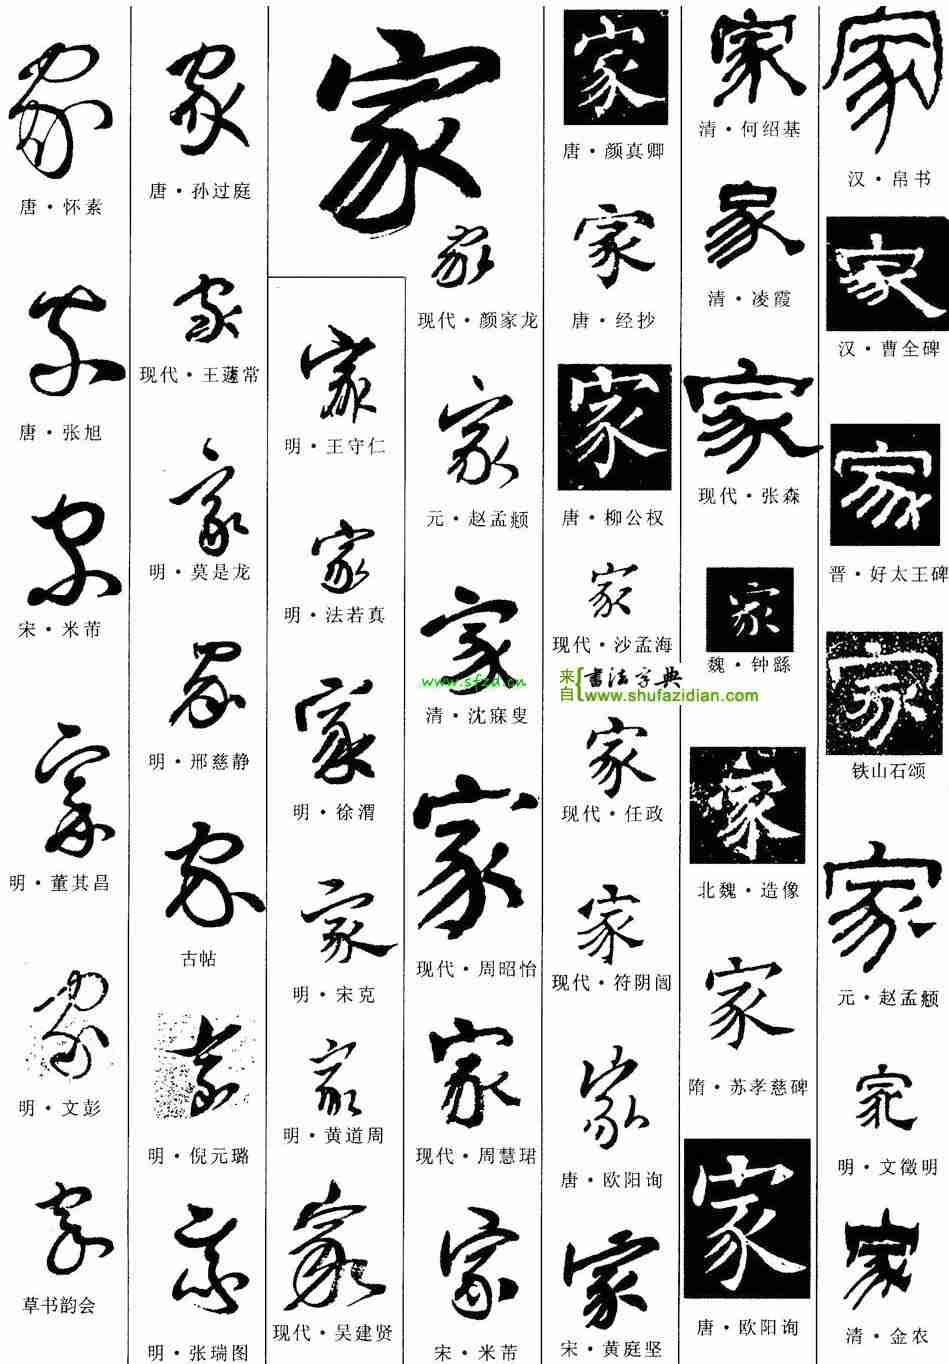 家
唐·怀素
家
唐·张旭
家
宋·米芾
家
明·董其昌
家
明·文彭
家
草书韵会
家
唐·孙过庭
家
现代·王蘧常
家
明·莫是龙
家
明·邢慈静
家
古帖
家
明·倪元璐
家
明·张瑞图
家
家
明·王守仁
家
明·法若真
家
明·徐渭
家
明·宋克
家
明·黄道周
家
现代·吴建贤
家
现代·颜家龙
家
元·赵孟頫
家
清·沈寐叟
www.sfzd.cn
家
现代·周昭怡
家
现代·周慧珺
家
宋·米芾
家
唐·颜真卿
家
唐·经抄
家
唐·柳公权
家
现代·沙孟海
来自
書法字典
www.shufazidian.com
家
现代·任政
家
现代·符阴阊
家
唐·欧阳询
家
宋·黄庭坚
家
清·何绍基
家
清·凌霞
家
现代·张森
家
魏·钟繇
家
北魏·造像
家
隋·苏孝慈碑
家
唐·欧阳询
家
汉·帛书
家
汉·曹全碑
家
晋·好太王碑
家
铁山石颂
家
元·赵孟頫
家
明·文徵明
家
清·金农